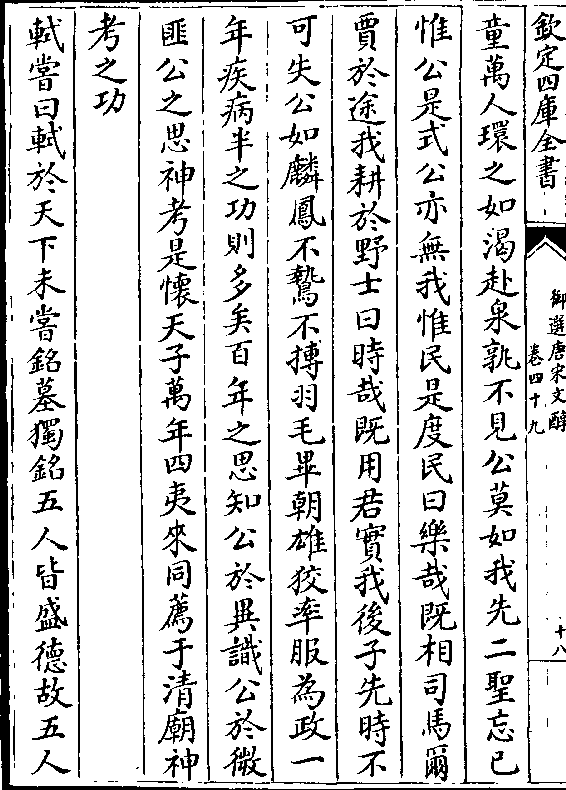 欽定四庫全書
御選唐宋文醇
卷四十九
十八
童萬人環之如渴赴泉孰不見公莫如我先二聖忘已
惟公是式公亦無我惟民是度民曰樂哉既相司馬爾
賈於途我耕於野士曰時哉既用君實我後子先時不
可失公如麟鳳不鷙不摶羽毛畢朝雄狡率服為政一
年疾病半之功則多矣百年之思知公於異識公於微
匪公之思神考是懷天子萬年四夷來同薦于清廟神
考之功
軾嘗曰軾於天下未嘗銘墓獨銘五人皆盛德故五人